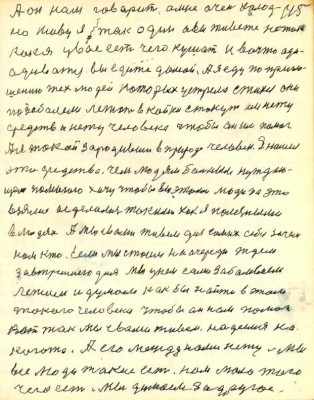 А он нам говорит, а мне очен хрод- 115
но живу я так один а вы живете потом
какая у вас есть чего кушат и во что оде-
ватся вы едите домой, А я еду по пригла-
шению тех людей которых
забалели лежат в койки стонут им нету
средств и нету человека чтобы он им помог
А я такой зародившии в природе человек Я нашел
эти средства, чем людям больным нужда-
щем помогаю хочу чтобы вы этого люди за это
взялис и делалис такими как я полезными
в людях А мы с вами живем для самих себя зачем
нам кто. Если мы стоим на очереди ждем
завтрешнего дня мы у нем сами забалеем
лежим и думаем как бы найти в этом
такого человека чтобы он нам помог
Вот так мы с вами живем. надеимся на
когото. А его между нами нету. Мы
все люди такие ест. нам мало того
чего ест. Мы думаем за другое.